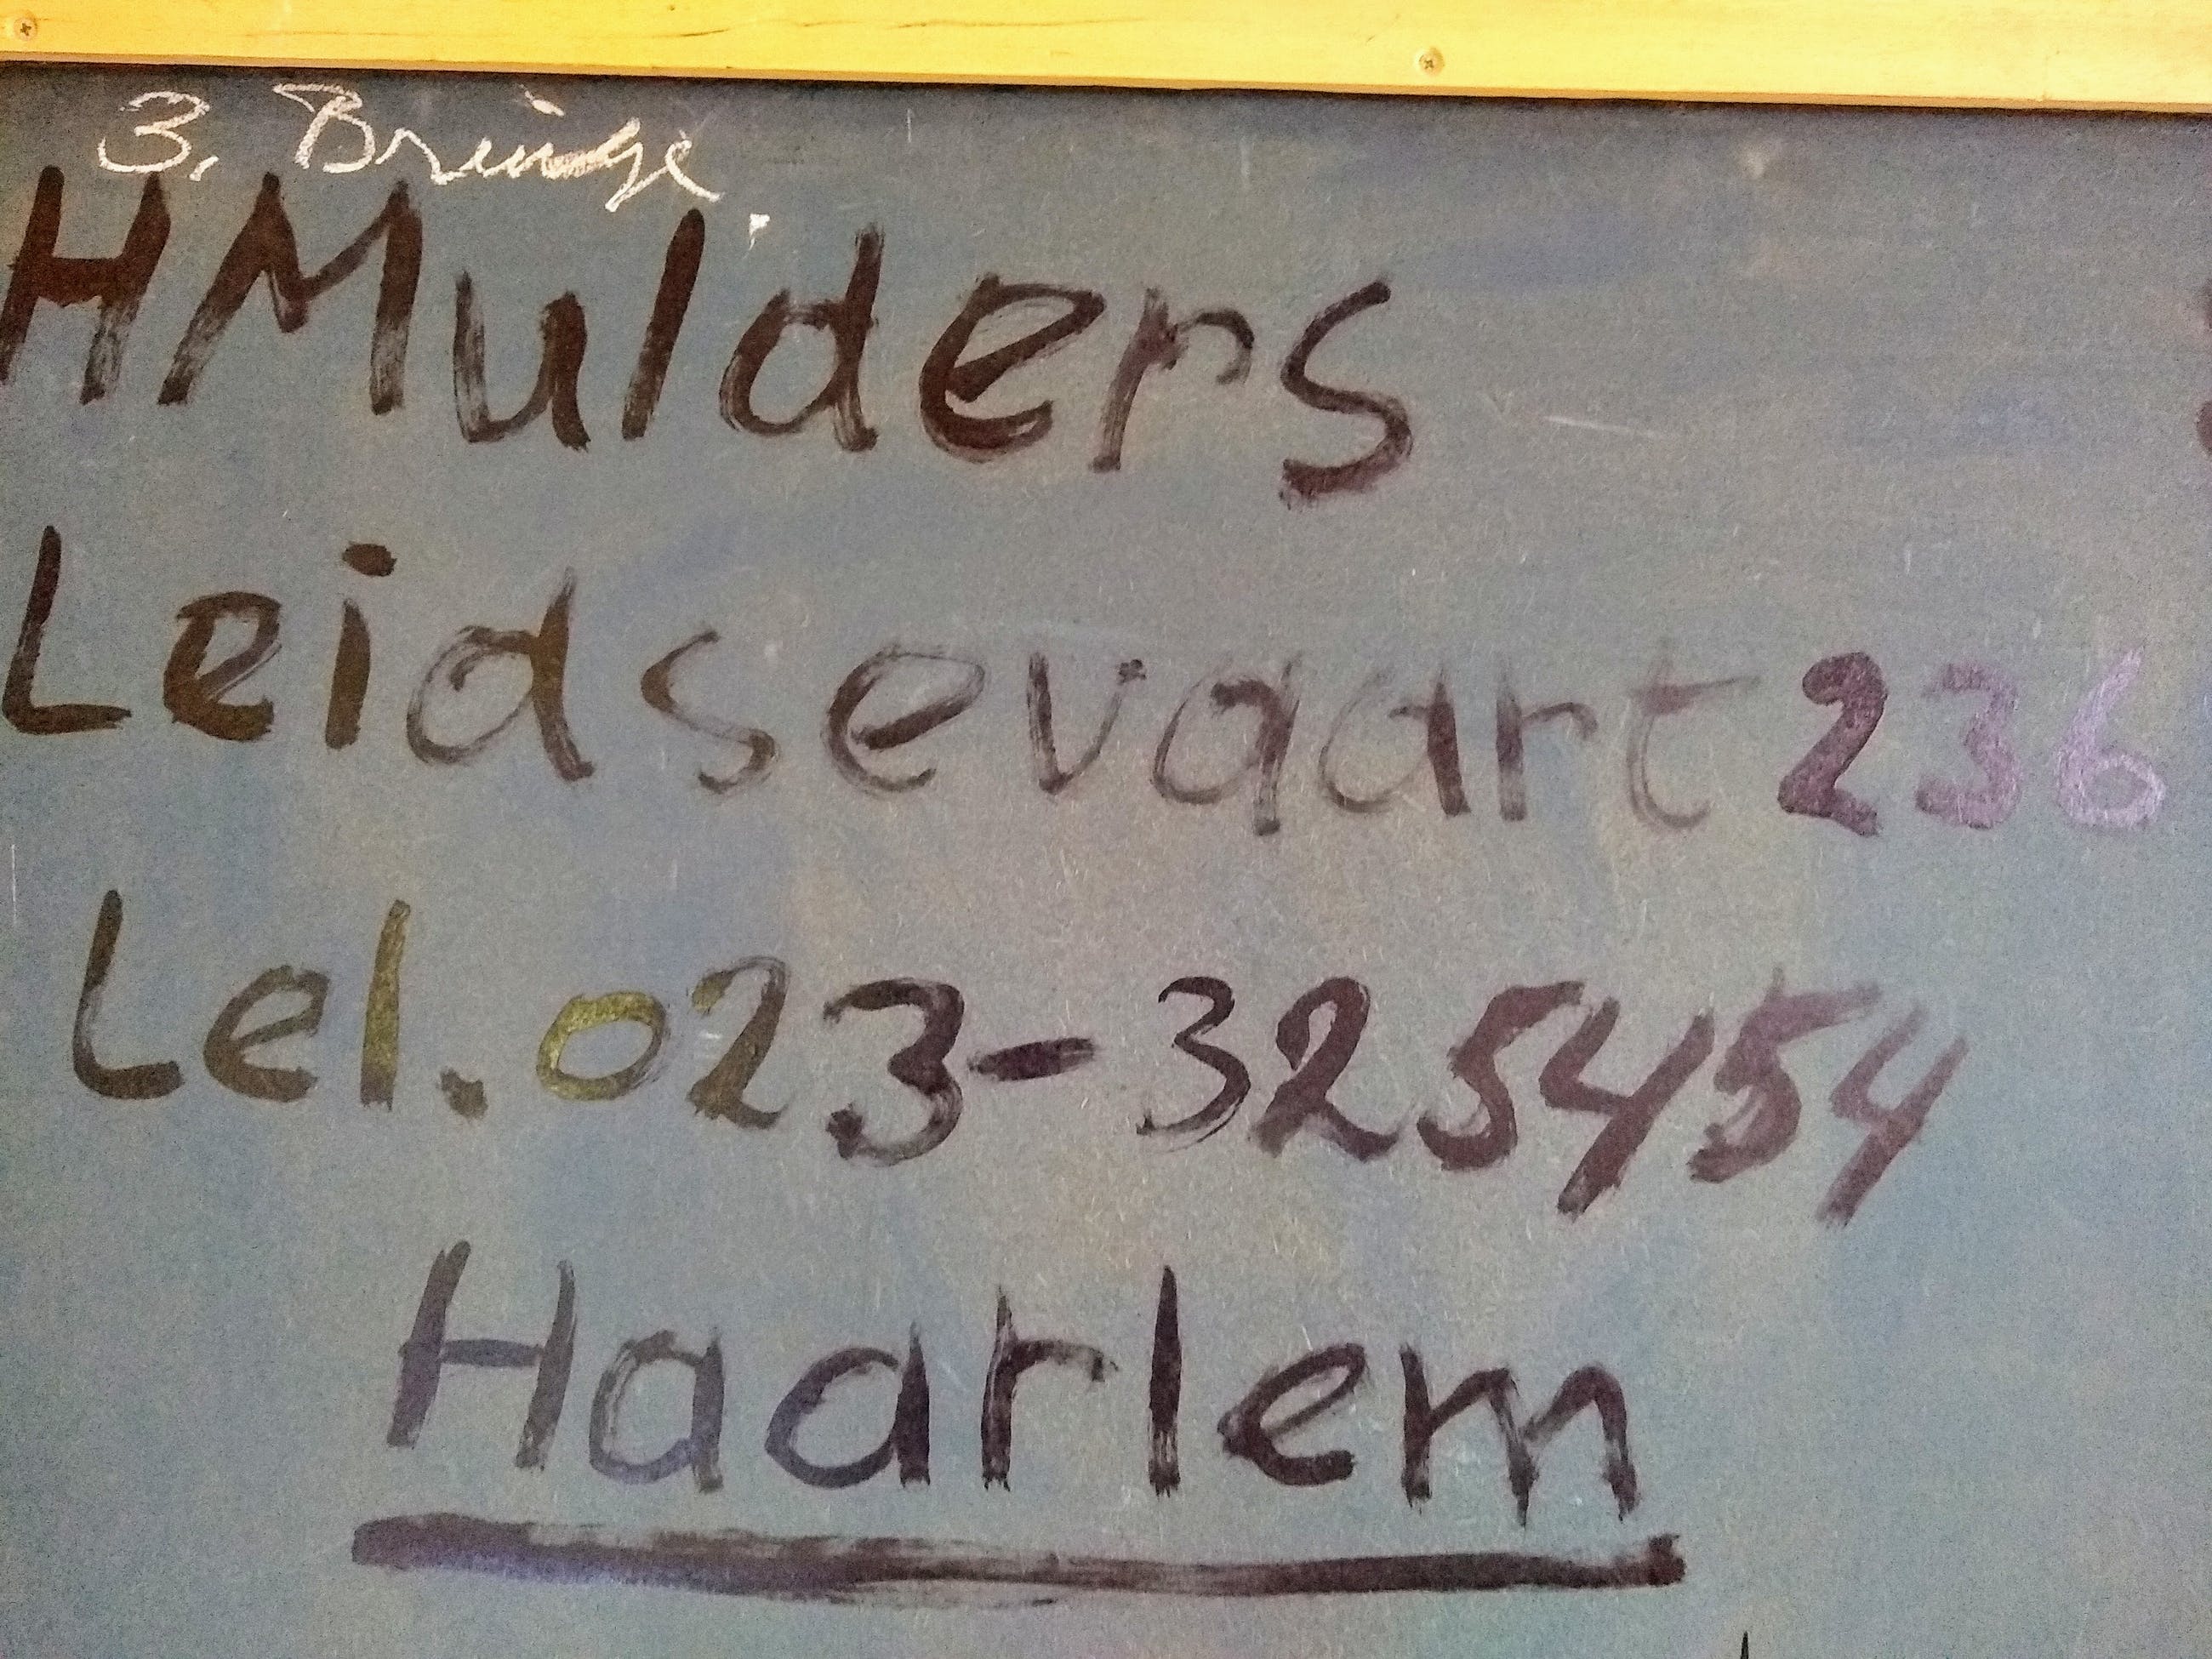 3. Bringe.
HMulders
Leidsevaart 236
Lel. 023-325454
Haarlem